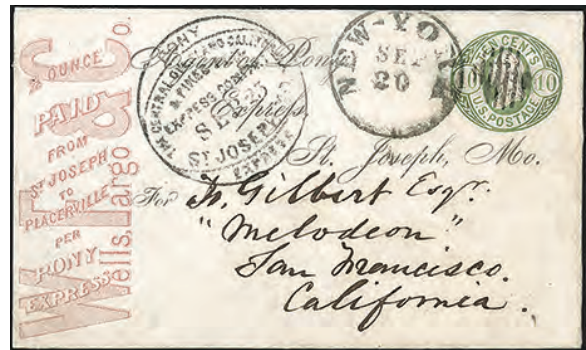 ½ OUNCE
PAID
FROM
ST JOSEPH
TO
PLACERVILLE
PER
PONY
EXPRESS
Wells, Fargo & Co.
PONY
THE CENTRAL OVERLAND CALIFORNIA
& PIKES PEAK
EXPRESS COMPANY
SEP 25
ST JOSEPH
EXPRESS
NEW-YORK
SEP
20
TEN CENTS
10 10
U.S. POSTAGE
Agent of Pony
Express,
St. Joseph, Mo.
For Gilbert Esqr.
"Melodeon"
San Francisco.
California.